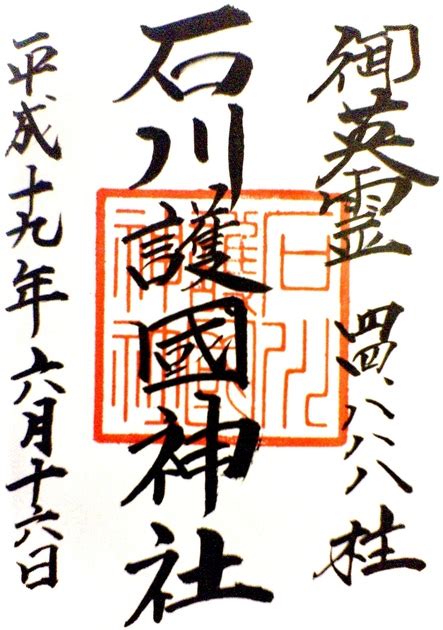 御英霊 四四、八八八柱
石川護國神社
石川
護國
神社
平成十九年六月十六日